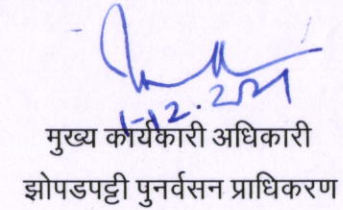 1-12.2021
मुख्य कार्यकारी अधिकारी
झोपडपट्टी पुनर्वसन प्राधिकरण